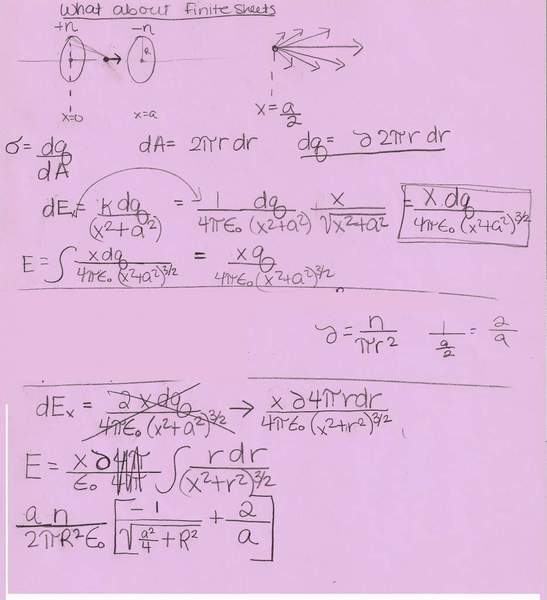 What about finite sheets
+n -n
a
x=0 x=a x=a/2
σ = dq/dA dA = 2πr dr dq = ∂ 2πr dr
dEx = k dq/(x²+a²) = 1/4πϵ₀ dq/(x²+a²) x/√(x²+a²) = x dq/4πϵ₀(x²+a²)^3/2
E = ∫ x dq/4πϵ₀(x²+a²)^3/2 = x q/4πϵ₀(x²+a²)^3/2
∂ = n/πr² 1/(a/2) = 2/a
dEx = 2x dq/4πϵ₀(x²+a²)^3/2 → x ∂ 4πr dr/4πϵ₀(x²+r²)^3/2
E = x ∂ 4π/ϵ₀ 4π ∫ r dr/(x²+r²)^3/2
a n/2πR²ϵ₀ [-1/√(a²/4 + R²) + 2/a]